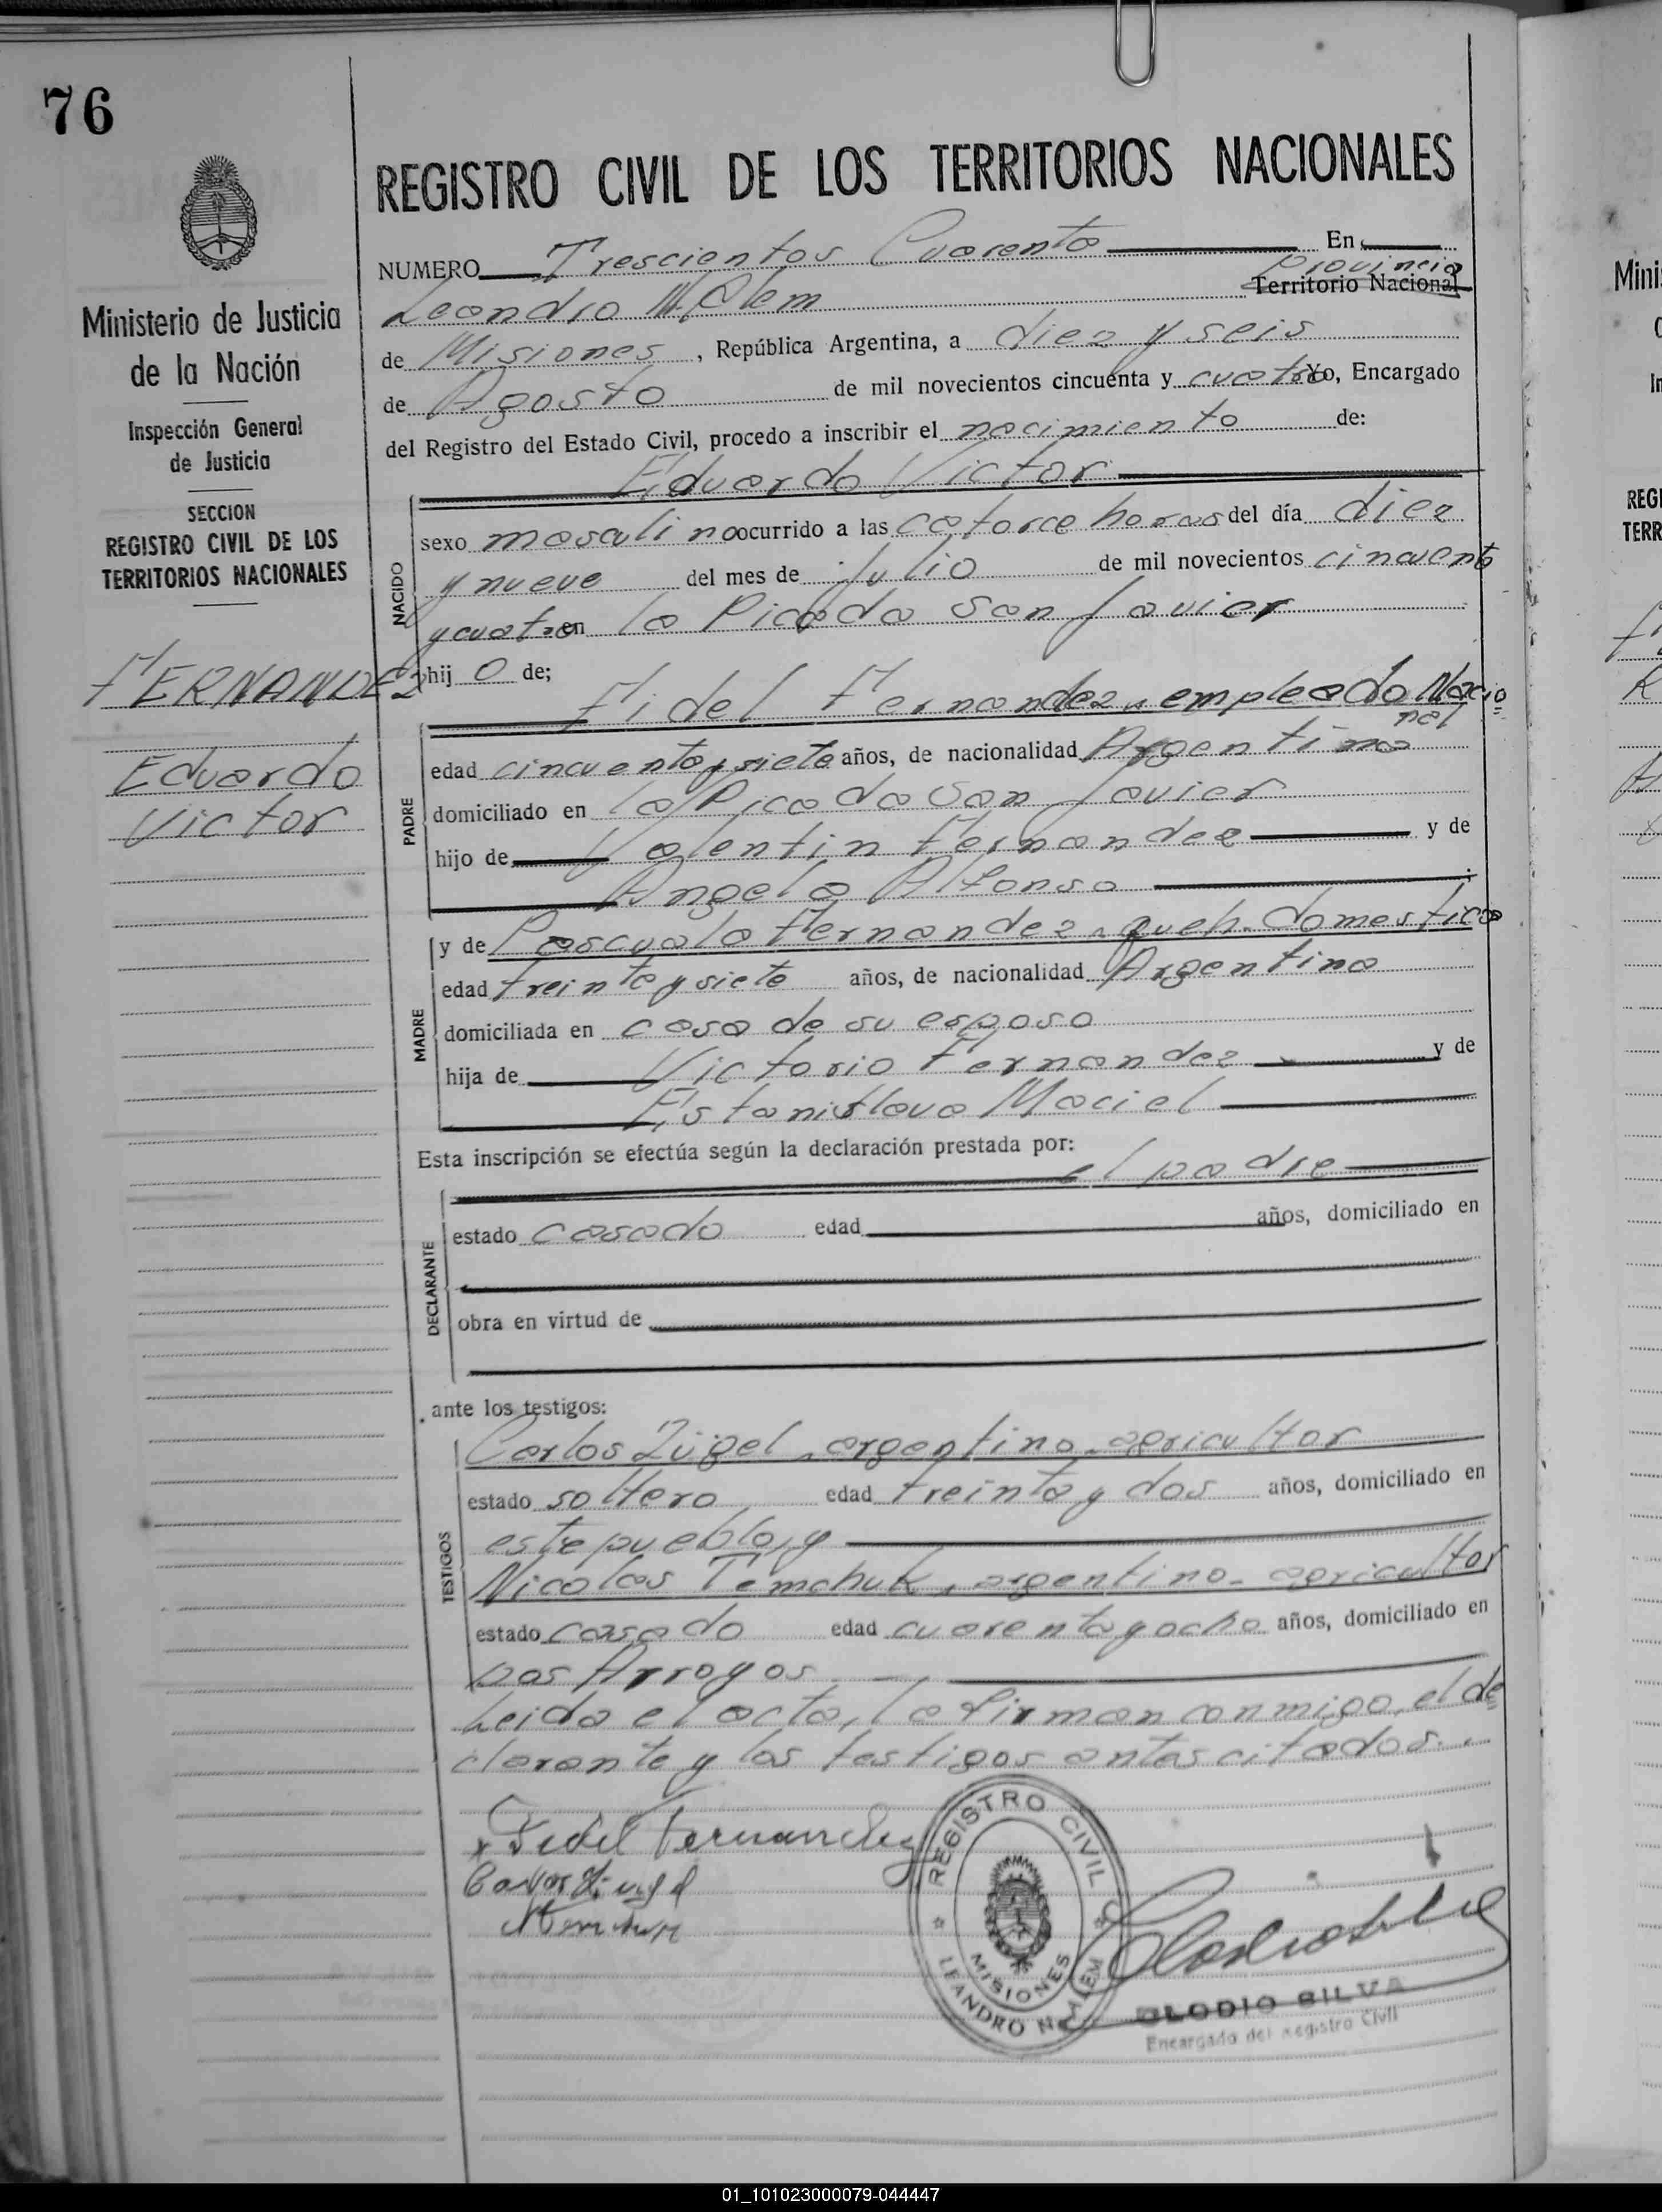 76
REGISTRO CIVIL DE LOS TERRITORIOS NACIONALES
NUMERO Trescientos Cuarenta En
Leandro N. Alem Provincia Territorio Nacional
de Misiones, República Argentina, a diez y seis
de Agosto de mil novecientos cincuenta y cuatro Yo, Encargado
del Registro del Estado Civil, procedo a inscribir el nacimiento de:
Eduardo Victor
NACIDO
sexo masculino ocurrido a las catorce horas del día diez
y nueve del mes de Julio de mil novecientos cincuenta
y cuatro en la Picada San Javier
hijo de;
Fidel Fernandez, empleado Nacional
PADRE
edad cincuenta y siete años, de nacionalidad Argentina
domiciliado en la Picada San Javier
hijo de Valentin Fernandez y de
Angela Alfonso ;
MADRE
y de Pascuala Fernandez, queh. domesticos
edad treinta y siete años, de nacionalidad Argentina
domiciliada en casa de su esposo
hija de Victorio Fernandez y de
Estanislava Maciel
Esta inscripción se efectúa según la declaración prestada por:
el padre
DECLARANTE
estado casado edad años, domiciliado en
obra en virtud de
ante los testigos:
TESTIGOS
Carlos Zügel, argentino, agricultor
estado soltero edad treinta y dos años, domiciliado en
este pueblo, y
Nicolas Temchuk, argentino- agricultor
estado casado edad cuarenta y ocho años, domiciliado en
Dos Arroyos
Leida el acta, la firman conmigo, el de=
clarante y los testigos antes citados.
Fidel Fernandez
REGISTRO CIVIL
MISIONES
LEANDRO N. ALEM
CLODIO SILVA
Encargado del Registro Civil
Ministerio de Justicia
de la Nación
Inspección General
de Justicia
SECCION
REGISTRO CIVIL DE LOS
TERRITORIOS NACIONALES
FERNANDEZ
Eduardo
Victor
Mini
REGI
TERR
01_101023000079-044447